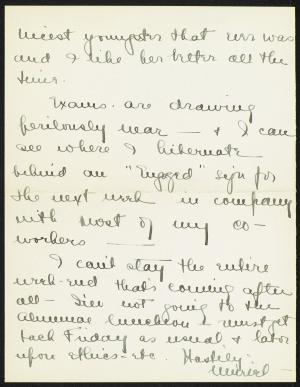 nicest youngster that ever was
and I like her better all the
time.
Exams. are drawing
perilously near — & I can
see where I hibernate
behind an "Engaged" sign for
the next week in company
with most of my co-
workers —
I can't stay the entire
week-end that's coming after
all — I'm not going to the
Alumnae luncheon — must get
back Friday as usual & labor
upon Ethics - etc. Hastily -
Muriel -